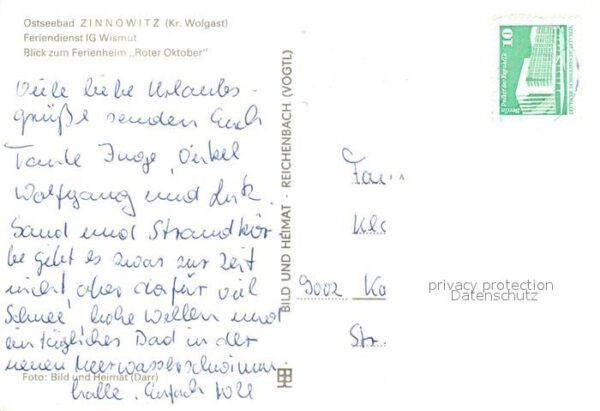 Ostseebad ZINNOWITZ (Kr. Wolgast)
Feriendienst IG Wismut
Blick zum Ferienheim „Roter Oktober"
Viele liebe Urlaubs-
grüße senden Euch
Tante Inge, Onkel
Wolfgang und
Sand und Strandkör
be gibt es zwar zur Zeit
nicht, aber dafür viel
Schnee, hohe Wellen und
ein tägliches Bad in der
neuen Meerwasserschwimm-
halle. Einfach toll
Foto: Bild und Heimat (Darr)
BILD UND HEIMAT · REICHENBACH (VOGTL)
10
Berlin
Palast der Republik
Fam
9002 Ka
Str.
privacy protection
Datenschutz